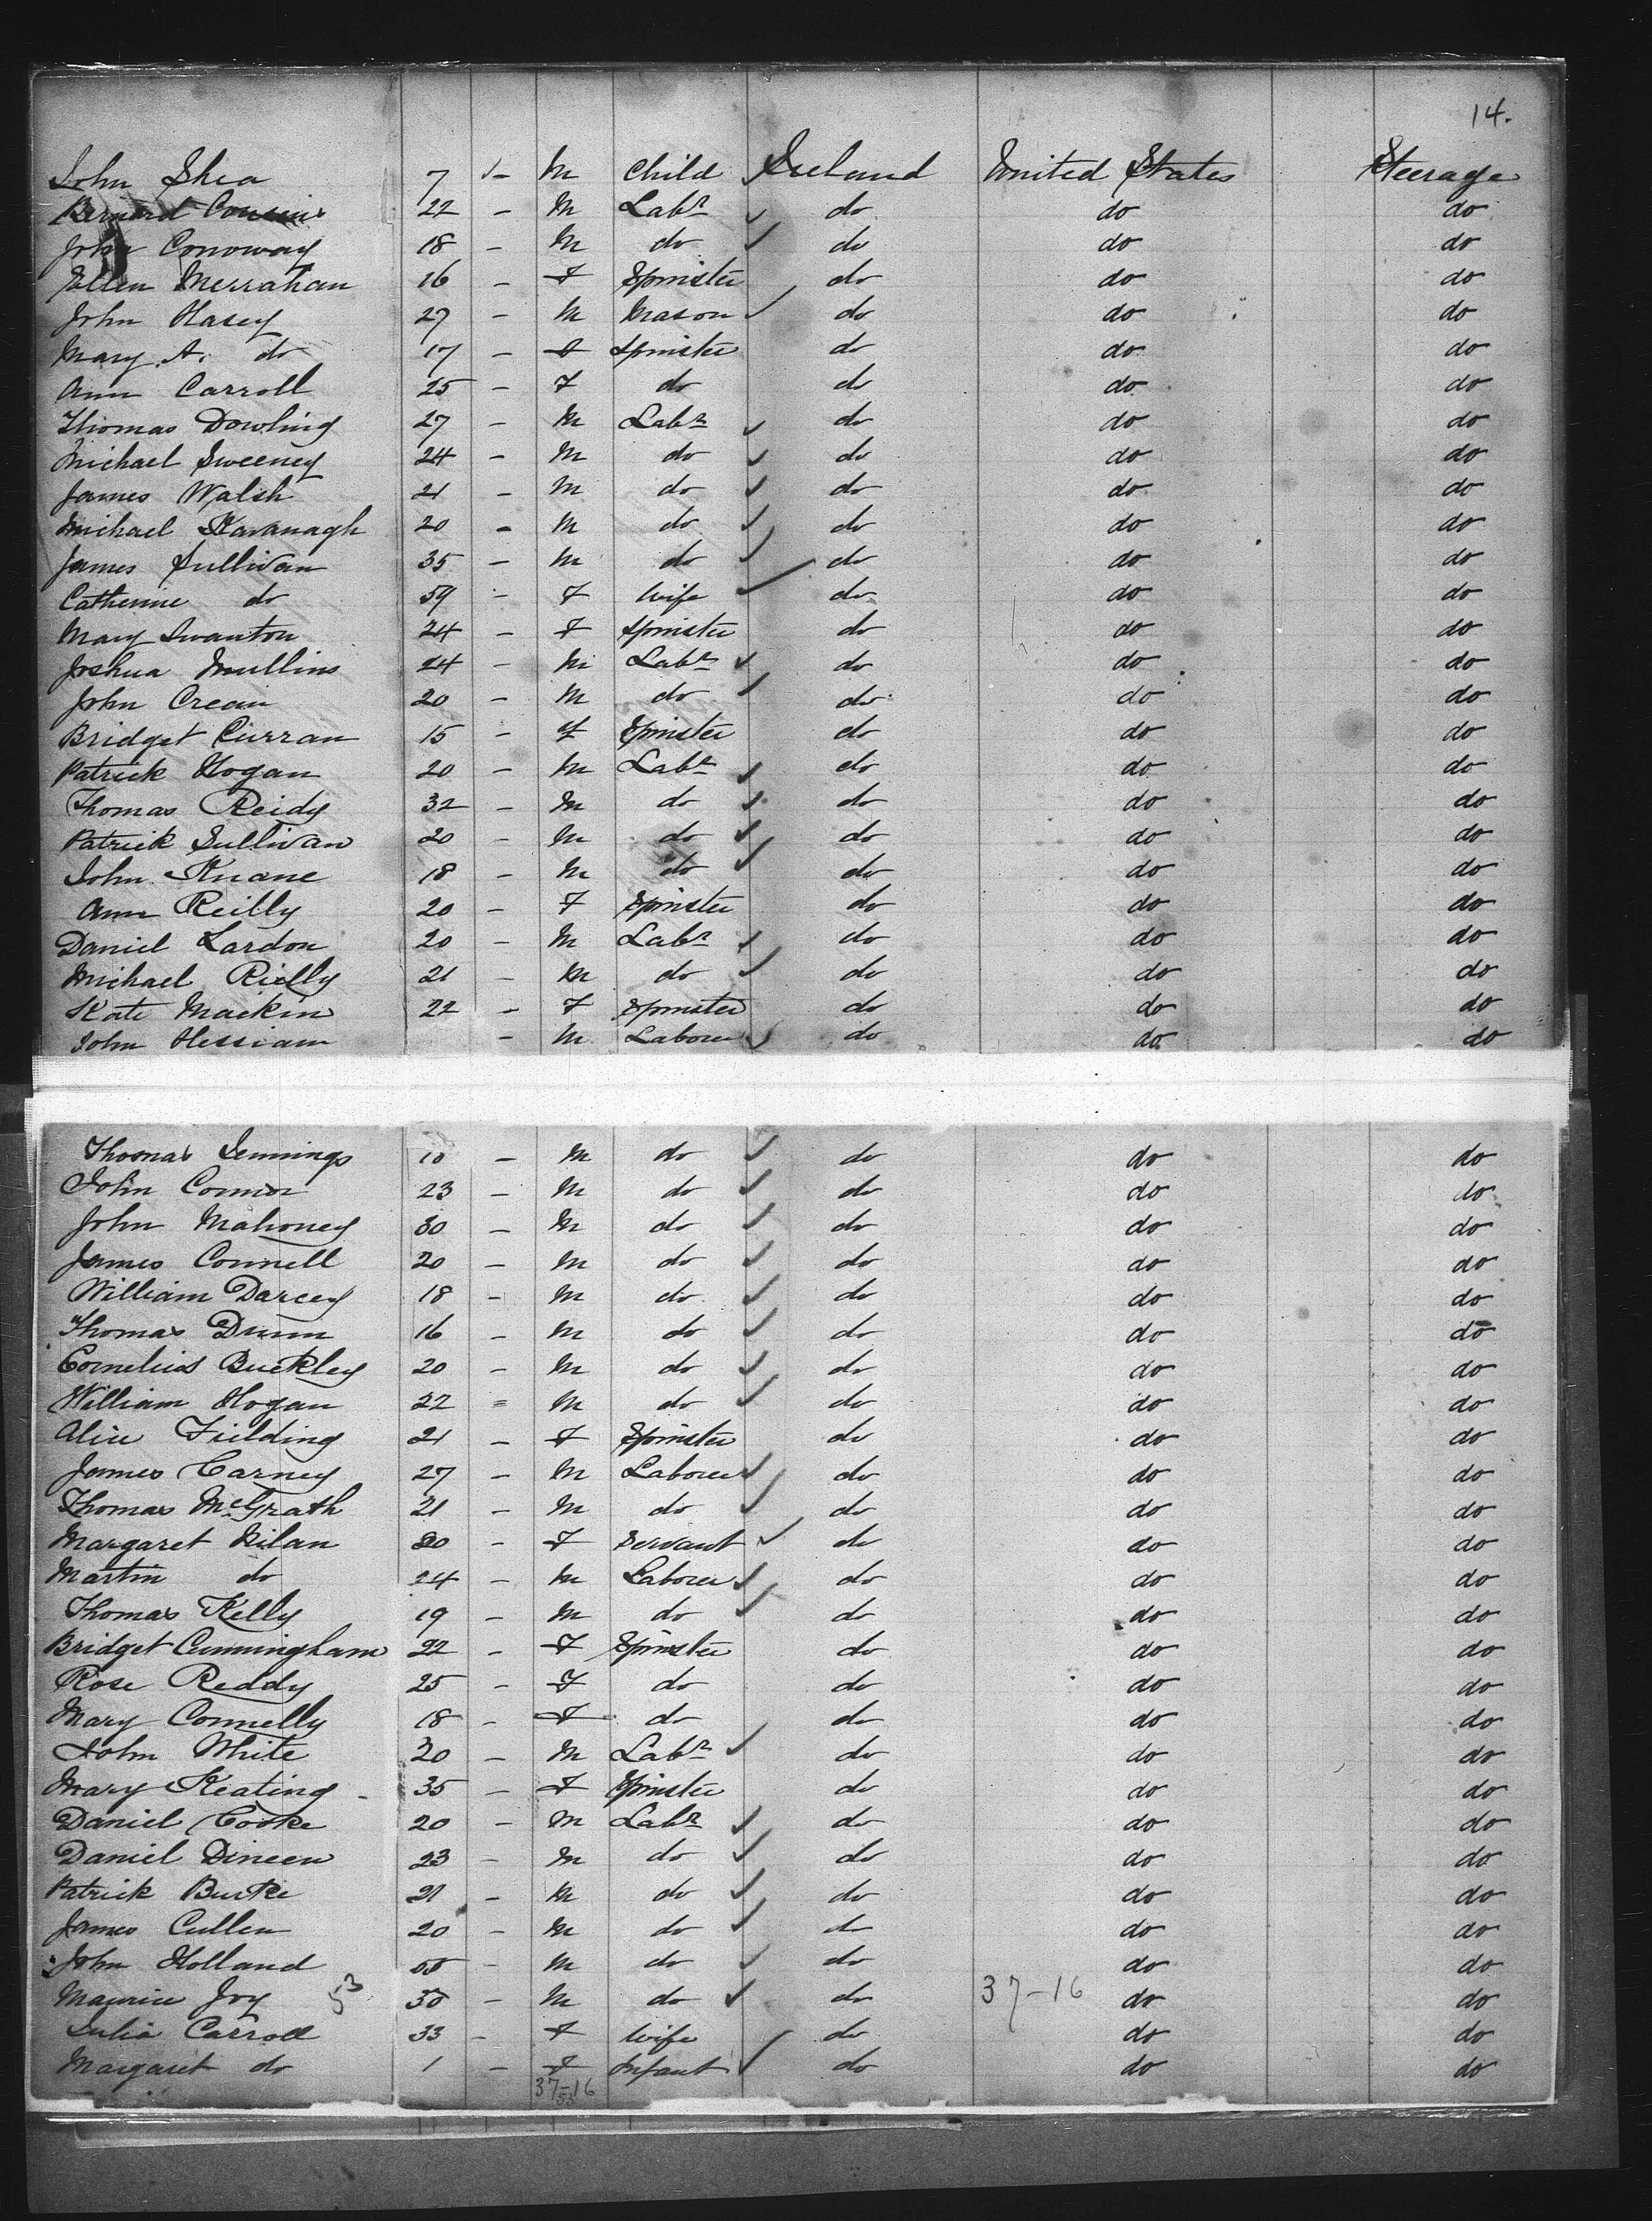 14.
John Shea 7 - M Child Ireland United States Steerage
Bernard Cousins 22 - M Labr do do do
John Conoway 18 - M do do do do
Ellen Merrahan 16 - F Spinster do do do
John Hasey 27 - M Mason do do do
Mary A. do 17 - F Spinster do do do
Ann Carroll 25 - F do do do do
Thomas Dowling 27 - M Labr do do do
Michael Sweeney 24 - M do do do do
James Walsh 21 - M do do do do
Michael Kavanagh 20 - M do do do do
James Sullivan 35 - M do do do do
Catherine do 59 - F Wife do do do
Mary Swanton 24 - F Spinster do do do
Joshua Mullins 24 - M Labr do do do
John Crean 20 - M do do do do
Bridget Curran 15 - F Spinster do do do
Patrick Hogan 20 - M Labr do do do
Thomas Reidy 32 - M do do do do
Patrick Sullivan 20 - M do do do do
John Kuane 18 - M do do do do
Ann Reilly 20 - F Spinster do do do
Daniel Lardon 20 - M Labr do do do
Michael Rielly 21 - M do do do do
Kate Mackin 22 - F Spinster do do do
John Hessiam - M Laborer do do do
Thomas Jennings 10 - M do do do do
John Connor 23 - M do do do do
John Mahoney 30 - M do do do do
James Connell 20 - M do do do do
William Darcey 18 - M do do do do
Thomas Dunn 16 - M do do do do
Cornelius Buckley 20 - M do do do do
William Hogan 22 = M do do do do
Alice Fielding 21 - F Spinster do do do
James Carney 27 - M Laborer do do do
Thomas McGrath 21 - M do do do do
Margaret Nilan 20 - F Servant do do do
Martin do 24 - M Laborer do do do
Thomas Kelly 19 - M do do do do
Bridget Cunningham 22 - F Spinster do do do
Rose Reddy 25 - F do do do do
Mary Connelly 18 - F do do do do
John White 20 - M Labr do do do
Mary Keating 35 - F Spinster do do do
Daniel Cooke 20 - M Labr do do do
Daniel Dineen 23 - M do do do do
Patrick Burke 21 - M do do do do
James Cullen 20 - M do do do do
John Holland - M do do do do
Maurice Joy 53 30 - M do do 37-16 do do
Julia Carroll 33 - F Wife do do do
Margaret do 1 - F Infant do do do
37-16
53